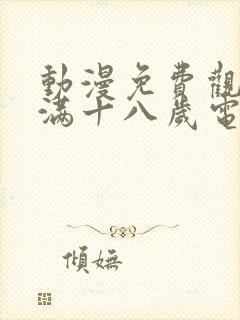 動漫免費觀
滿十八歲電
傾嫵